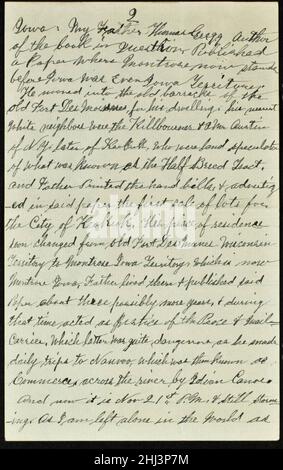 2
Iowa. My Father Thomas Gregg author
of the book in question, Published
a Paper where Montrose now stands
before Iowa was Even Iowa Territory.
He moved into the old barracks of the
old Fort Des Moines for his dwelling; his nearest
White neighbors were the Killbournes & a Mr Austin
of N.Y. late of Keokuk. who were land speculators
of what was known as the Half Breed Tract,
and Father Printed the hand bills, & advertis
ed in said paper the first sale of lots for
the City of Keokuk. Their place of residence
soon changed from Old Fort Des Moines Wisconsin
Territory to Montrose Iowa Territory which is now
Montrose Iowa, Father lived there & published said
Paper about three possibly more years, & during
that time acted as Justice of the Peace & Mail
Carrier, Which latter was quite dangerous as he made
daily trips to Nauvoo, which was then known as
Commerce, across the river by Indian Canoe
And now it is Nov 21st P.M. & still storm
ing. As I am left alone in the World as
alamy
Image ID: 2HJ3P7M
www.alamy.com